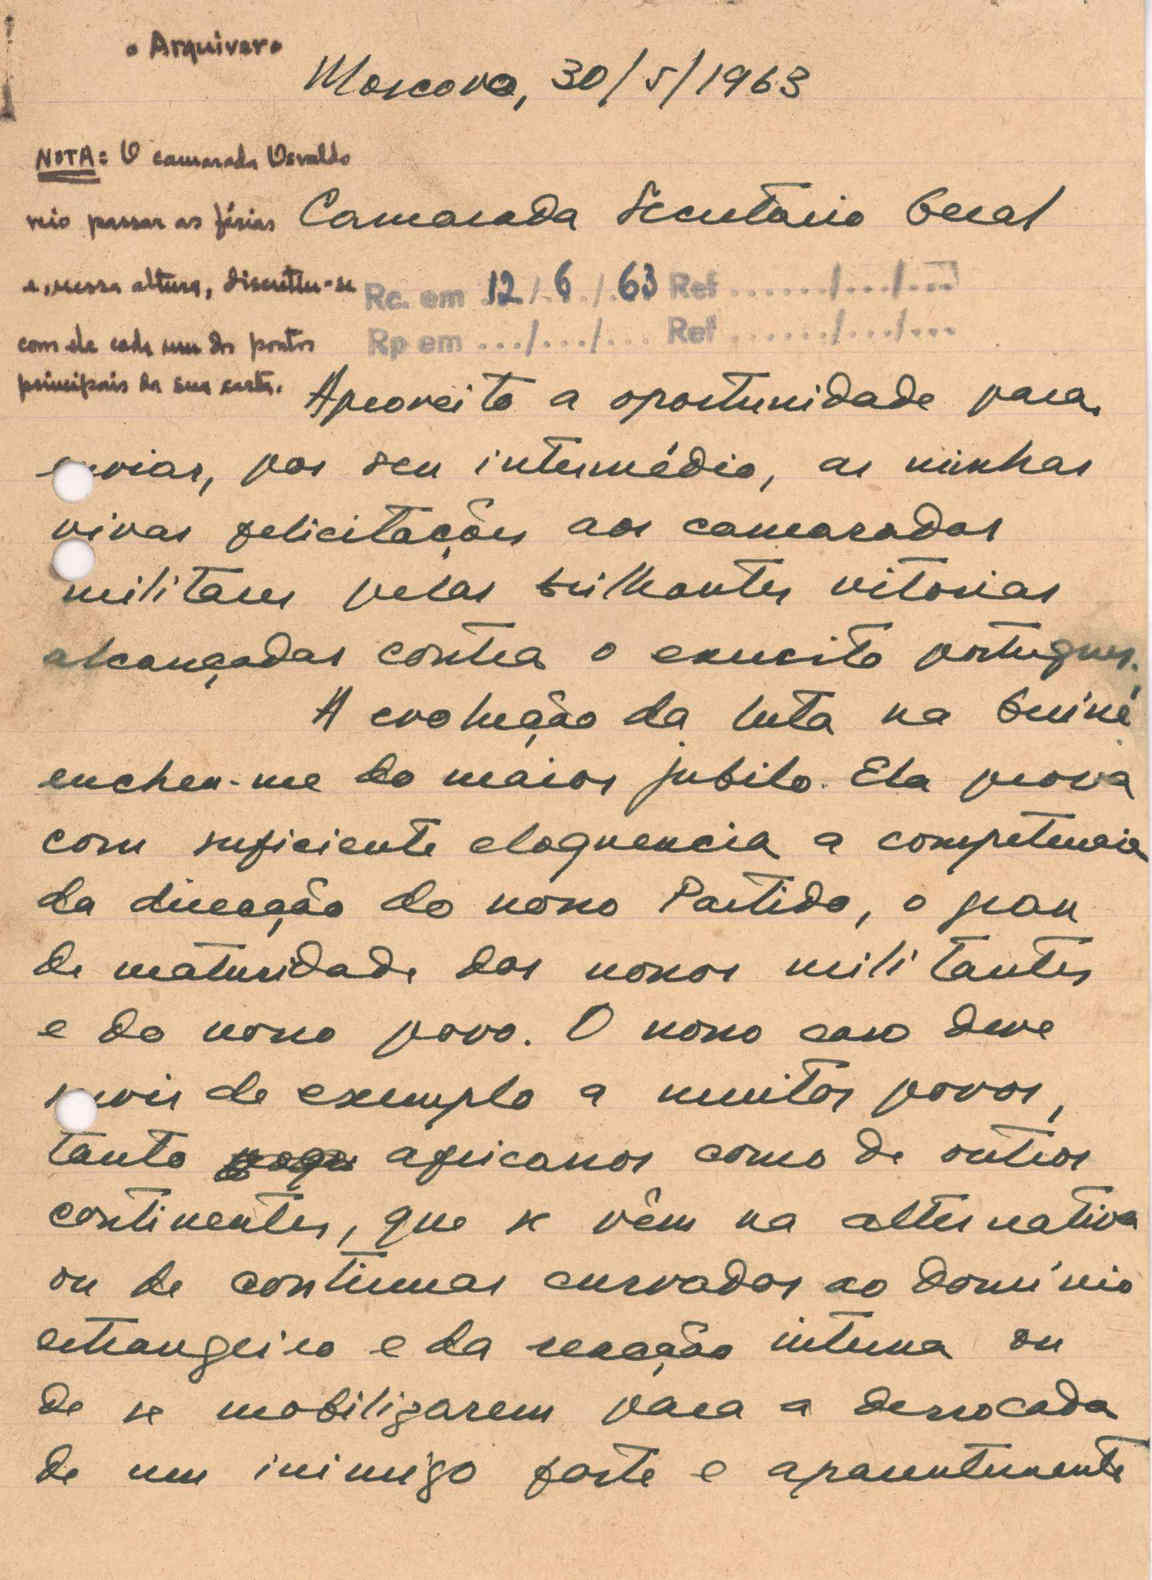 • Arquivar •
Moscovo, 30/5/1963
NOTA: O camarada Osvaldo
veio passar as férias
e, nessa altura, discutiu-se
com ele cada um dos pontos
principais da sua carta.
Camarada Secretário Geral
Rc. em 12/6/63 Ref ....../.../...
Rp em .../.../... Ref ....../.../...
Aproveito a oportunidade para
enviar, por seu intermédio, as minhas
vivas felicitações aos camaradas
militares pelas brilhantes vitorias
alcançadas contra o exercito portugues.
A evolução da luta na Guiné
enchem-me do maior jubilo. Ela prova
com suficiente eloquencia a competencia
da direcção do nosso Partido, o grau
de maturidade dos nossos militantes
e do nosso povo. O nosso caso deve
servir de exemplo a muitos povos,
tanto africanos como de outros
continentes, que se vêm na alternativa
ou de continuar curvados ao domínio
estrangeiro e da reacção interna ou
de se mobilizarem para a derrocada
de um inimigo forte e aparentemente